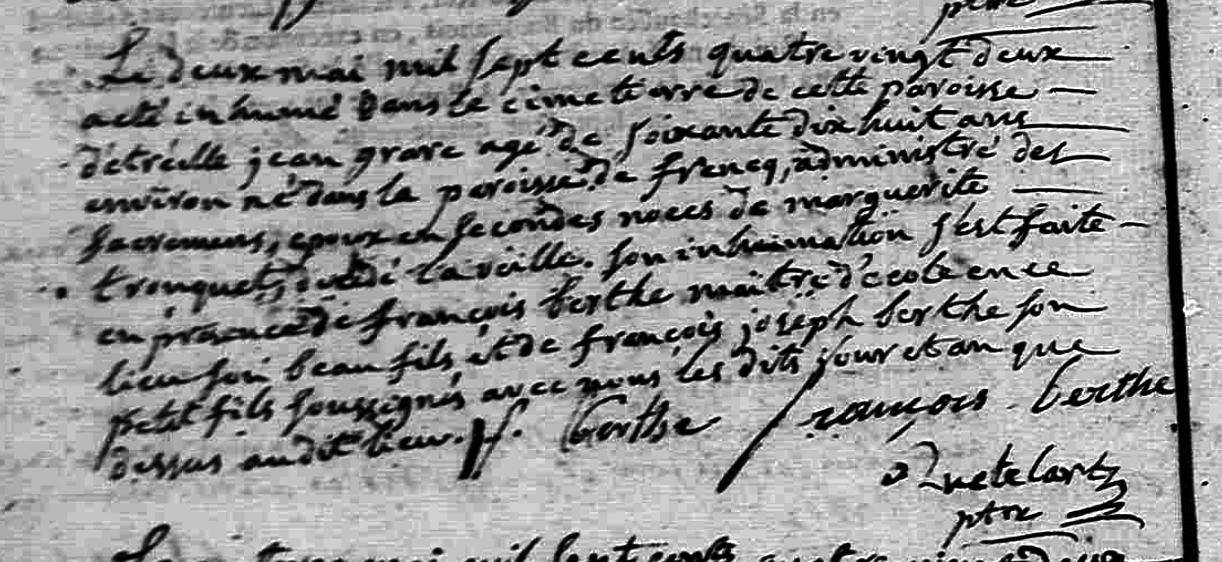 ptre
Le deux mai mil sept cents quatre vingt deux
a eté inhumé dans le cimetierre de cette paroisse
d'etréelle jean grare agé de soixante dix huit ans
environ né dans la paroisse de frencq, administré des
sacremens, epoux en secondes noces de marguerite
tronquet, decedé la veille. son inhumation s'est faite
en présence de françois berthe maitre d'école en ce
lieu son beau fils, et de françois joseph berthe son
petit fils soussignés avec nous les dits jour et an que
dessus audit lieu. f. berthe françois berthe
Quetelart
ptre
mai mil sept cents quatre vingt deux